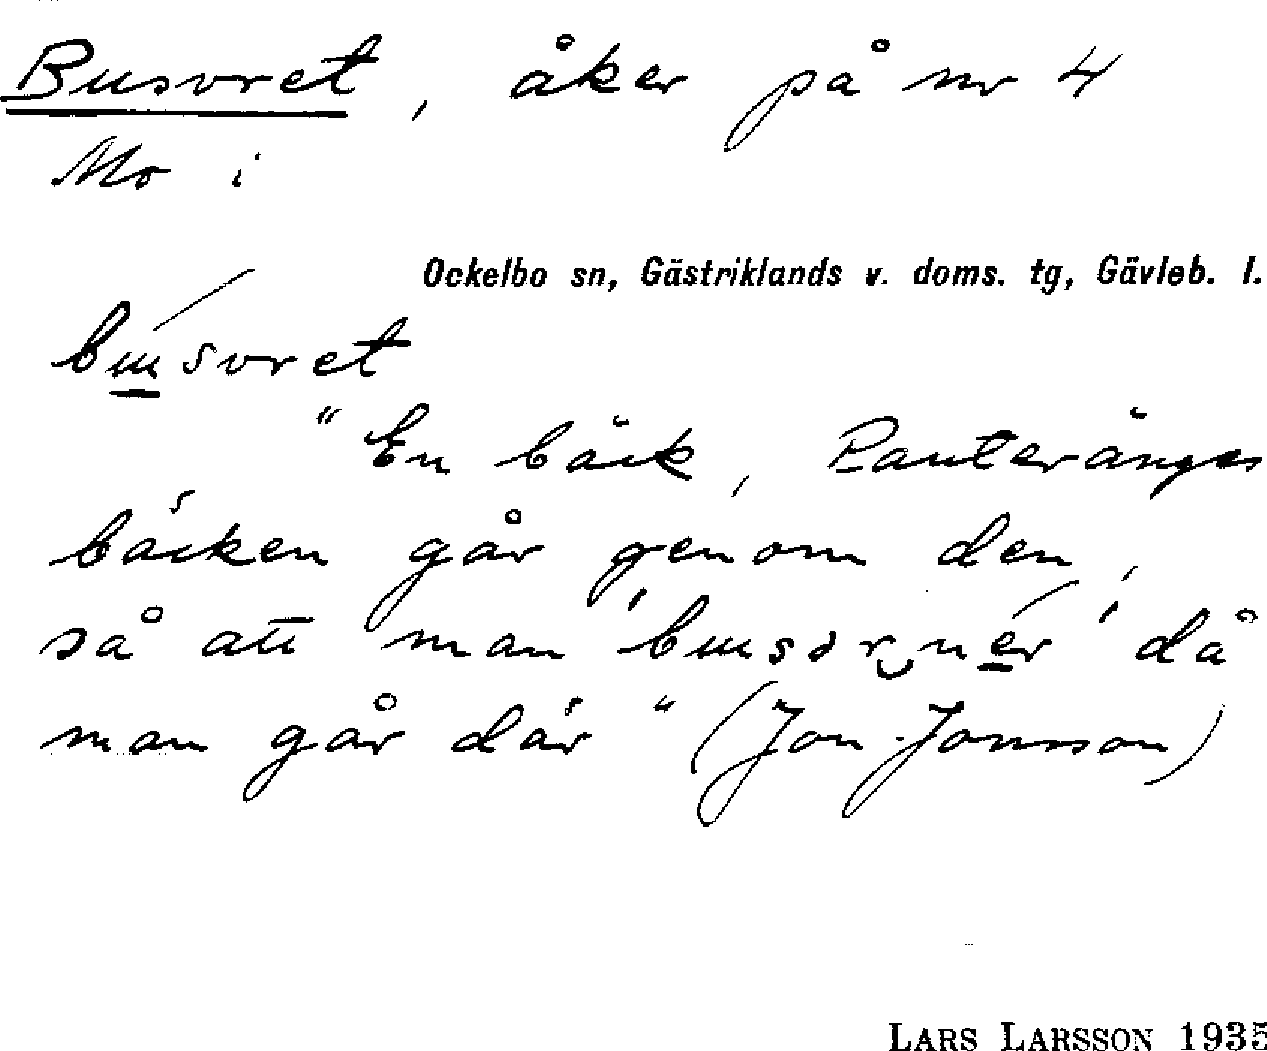 Busvret, åker på nr 4
Mo i
Ockelbo sn, Gästriklands v. doms. tg, Gävleb. l.
busvret
"En bäck, Ranterängs
bäcken går genom den,
så att man 'busar nér' då
man går där" (Jon-Jonsson)
LARS LARSSON 1935